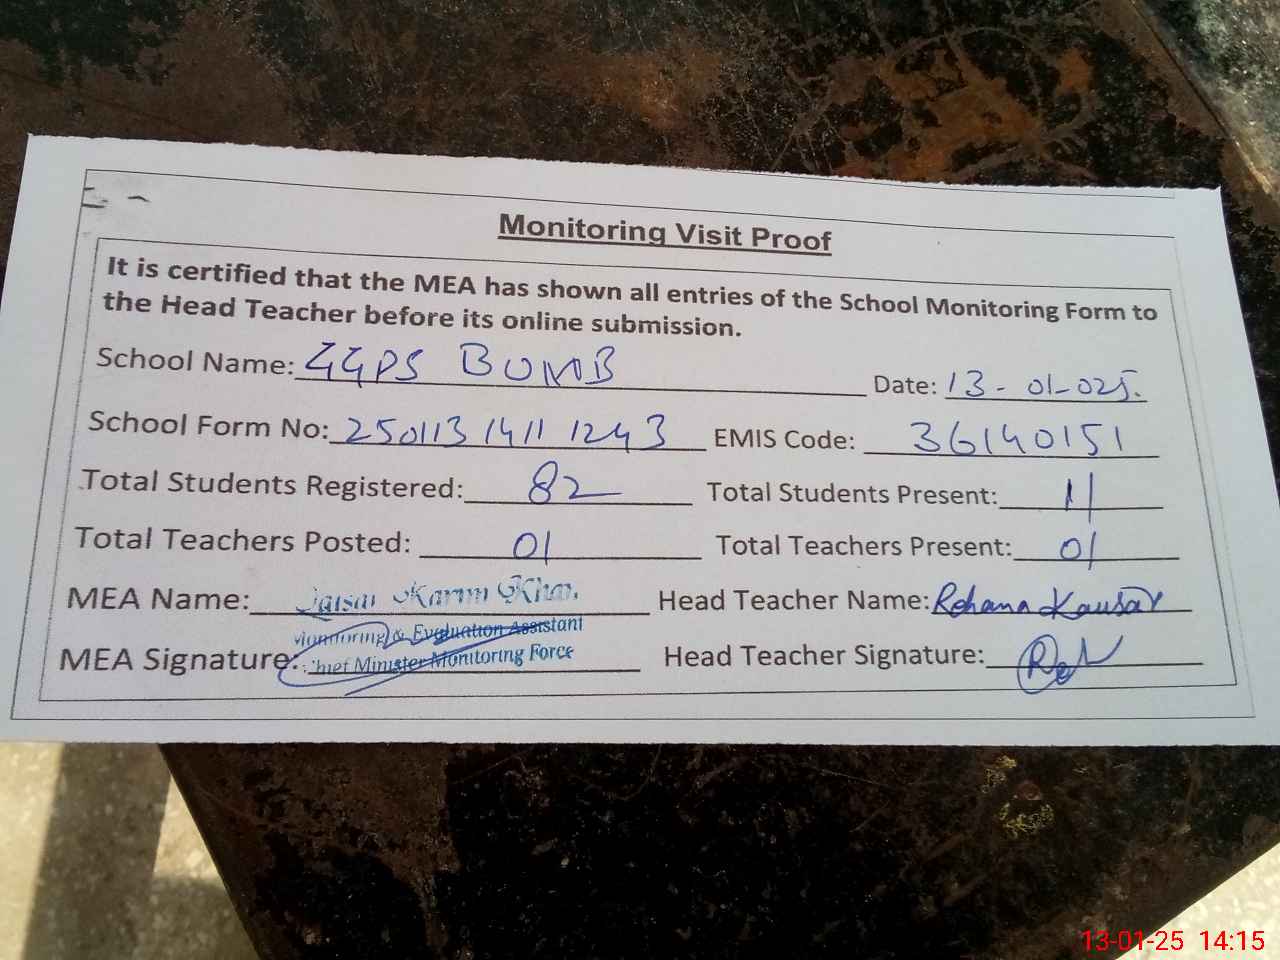 Monitoring Visit Proof
It is certified that the MEA has shown all entries of the School Monitoring Form to
the Head Teacher before its online submission.
School Name: GGPS BUMB Date: 13-01-025.
School Form No: 250113 1411 1243 EMIS Code: 36140151
Total Students Registered: 82 Total Students Present: 11
Total Teachers Posted: 01 Total Teachers Present: 01
MEA Name: Karim Khan Head Teacher Name: Rehana Kausar
Monitoring & Evaluation Assistant
MEA Signature: Chief Minister Monitoring Force Head Teacher Signature:
13-01-25 14:15